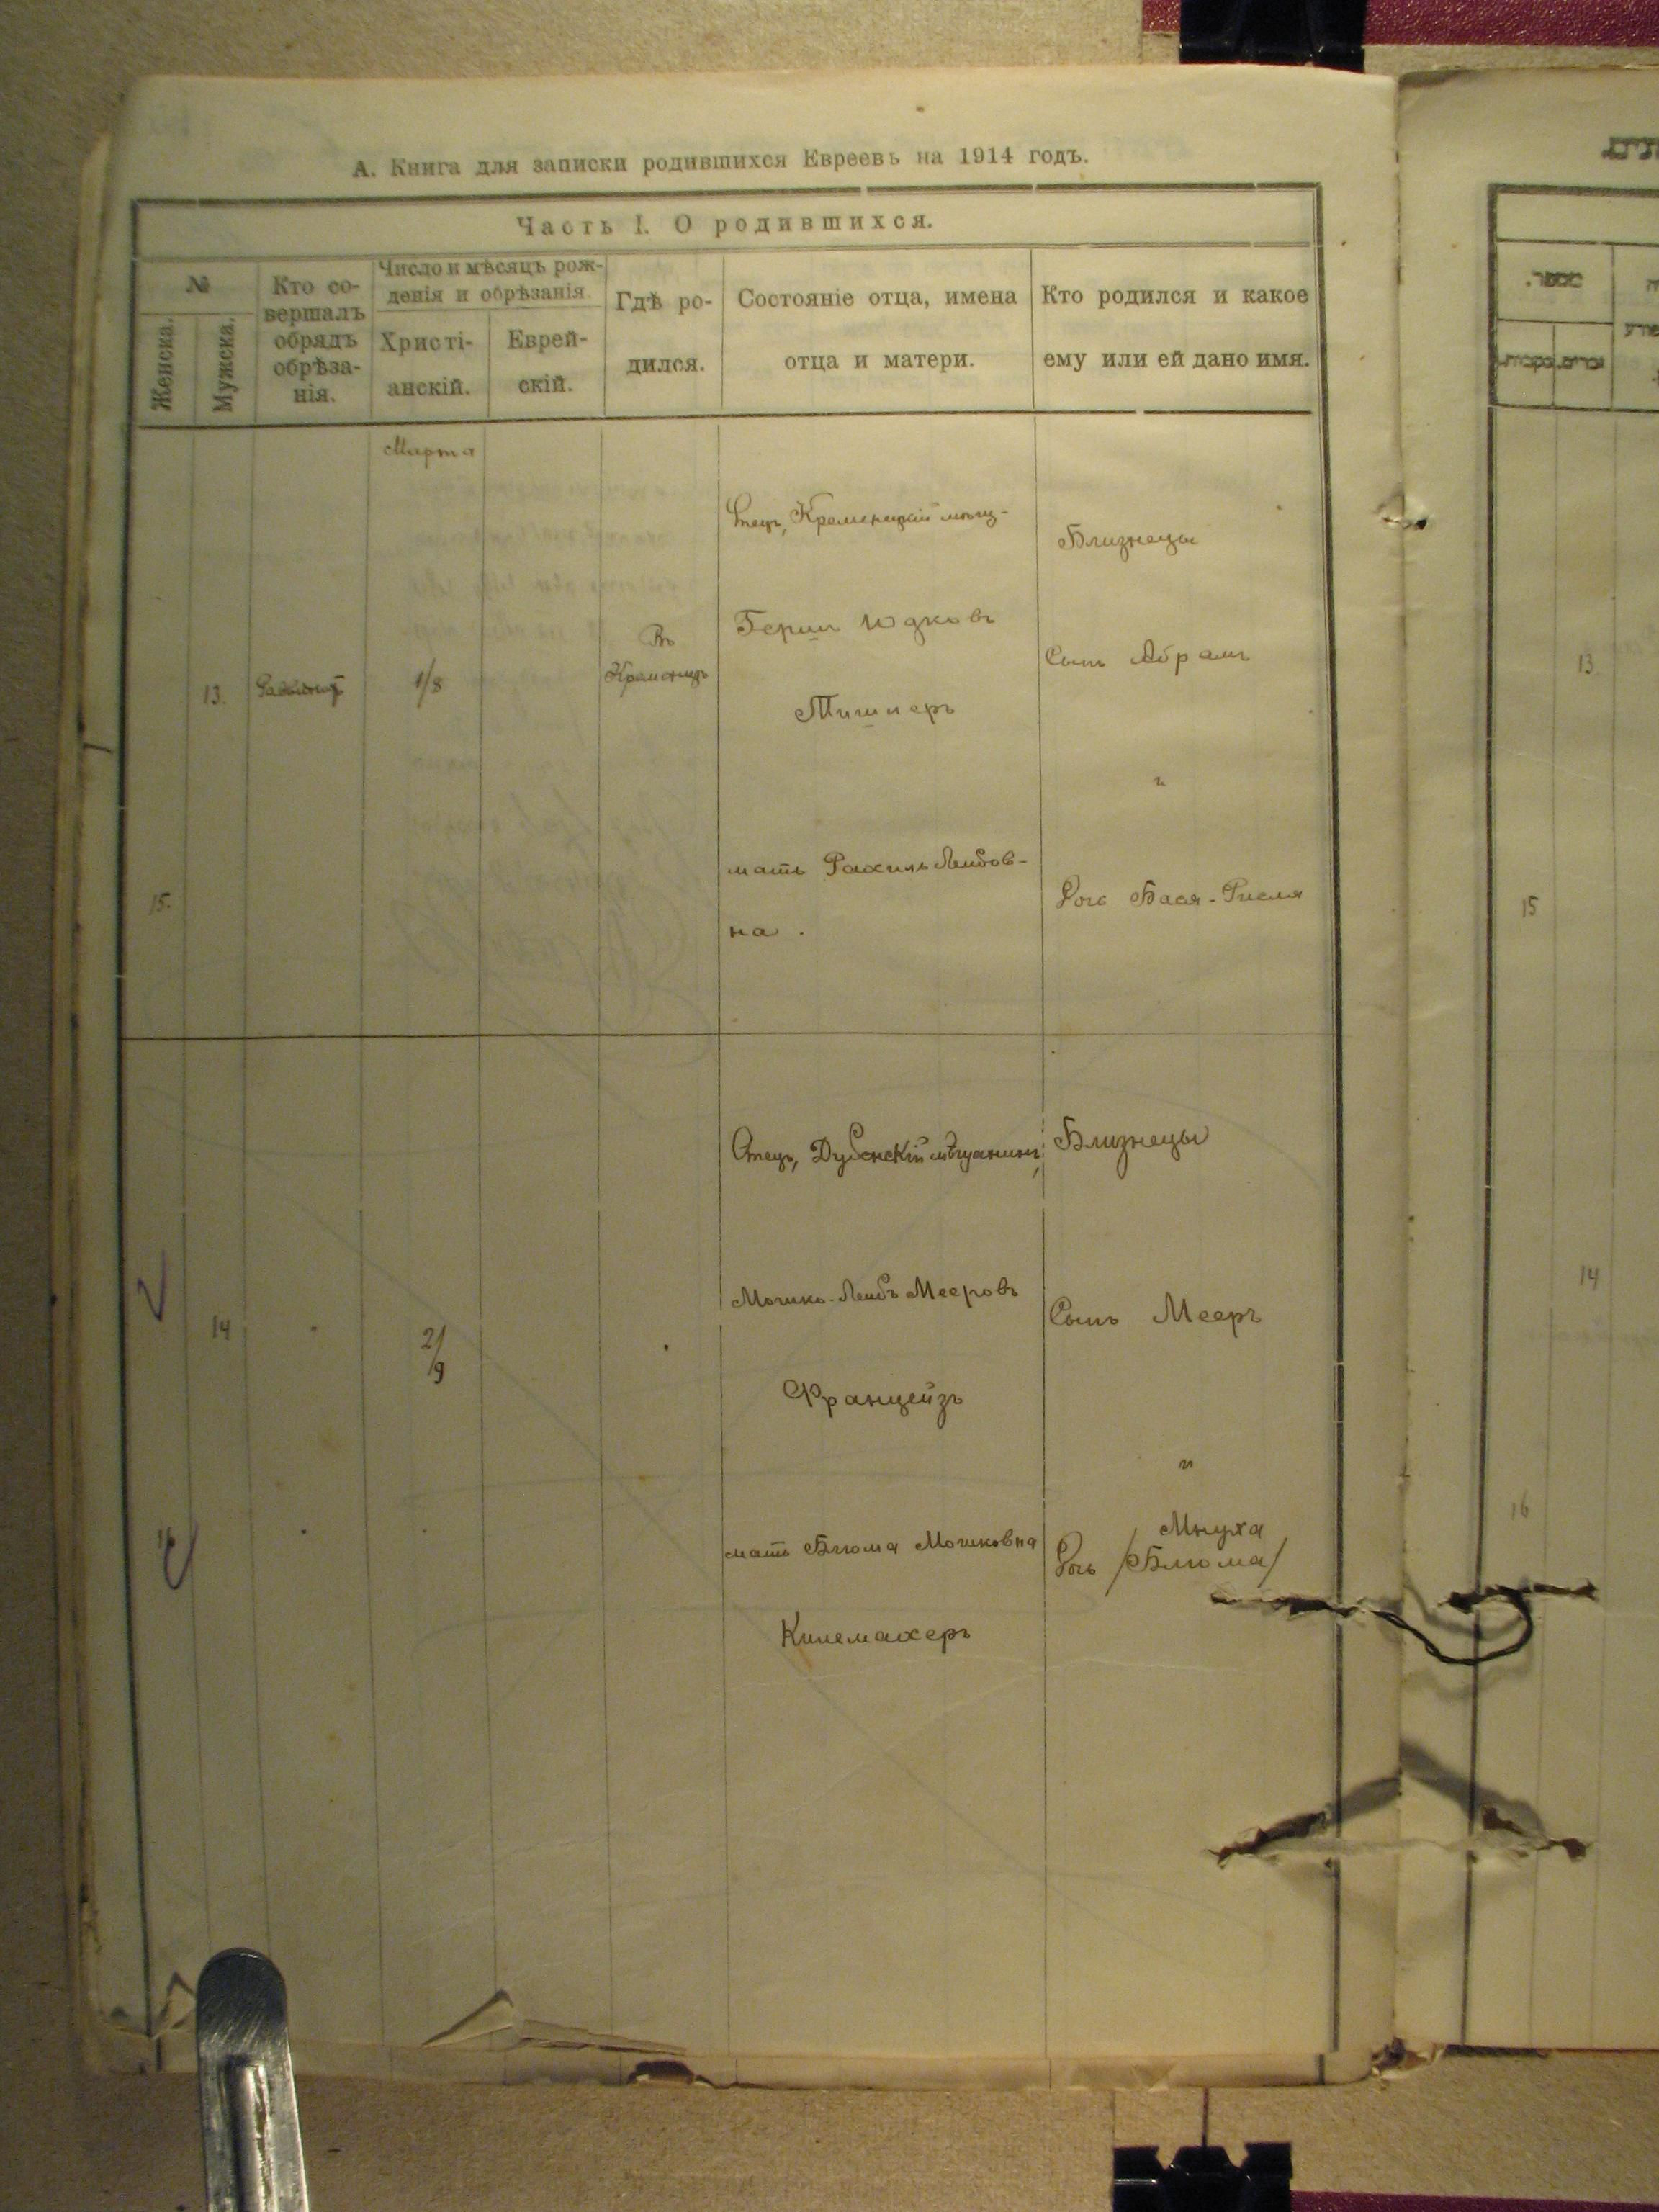 А. Книга для записки родившихся Евреевъ на 1914 годъ.
Часть I. О родившихся.
№
Женска.
Мужска.
Кто со-
вершалъ
обрядъ
обрѣза-
нія.
Число и мѣсяцъ рож-
денія и обрѣзанія.
Христі-
анскій.
Еврей-
скій.
Гдѣ ро-
дился.
Состояніе отца, имена
отца и матери.
Кто родился и какое
ему или ей дано имя.
Марта
13.
1/8
Въ
Кременцѣ
Отецъ, Кременецкій мѣщ-
Герш Юдковъ
Тишнеръ
Близнецы
Сынъ Абрамъ
и
15.
мать Рахиль Лейбов-
на.
Дочь Бася-Рисля
14
2/9
Отецъ, Дубенскій мѣщанинъ,
Мошко-Лейбъ Мееровъ
Францейзъ
Близнецы
Сынъ Мееръ
и
16
мать Блюма Мошковна
Килемахеръ
Мнуха
Дочь /Блюма/
13
15
14
16